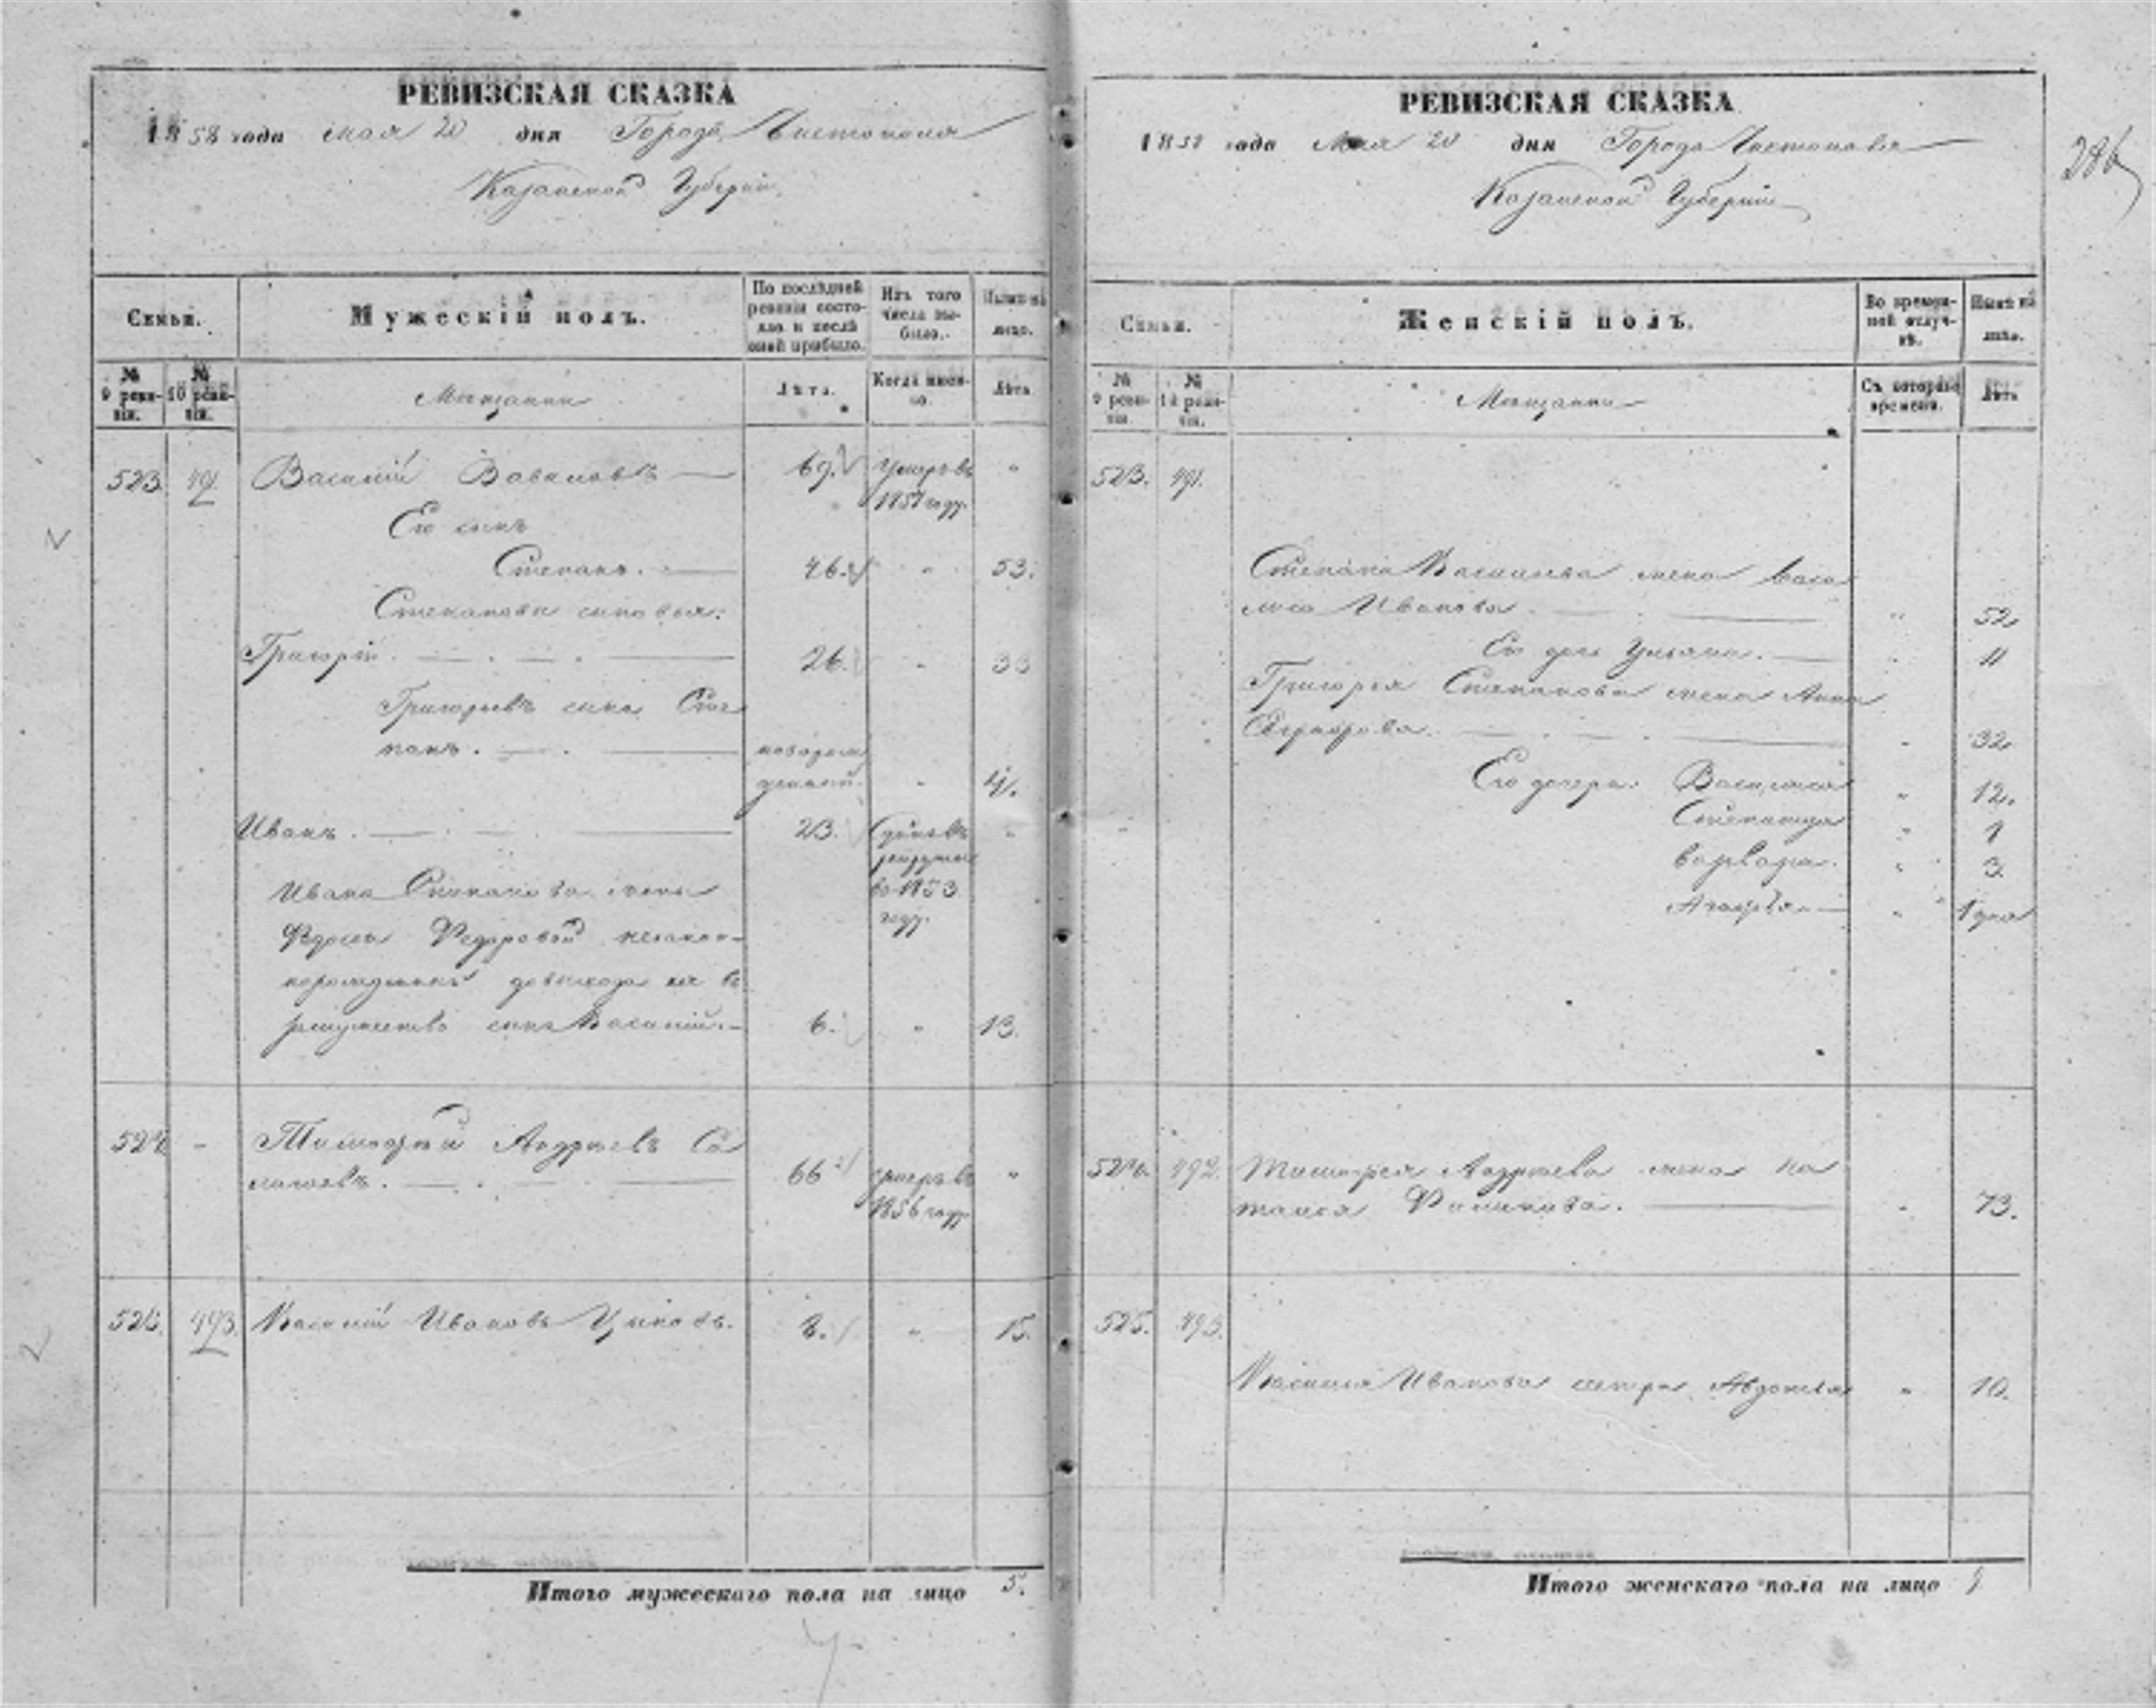 РЕВИЗСКАЯ СКАЗКА
1858 года мая 20 дня Города Чистополя
Казанской Губернии.
Семьи.
Мужескій полъ.
По послѣдней ревизіи состояло и послѣ оной прибыло.
Изъ того числа выбыло.
Нынѣ на лицо.
№ 9 ревизіи.
№ 10 ревизіи.
Мещане
Лѣта.
Когда именно.
Лѣта
523. 491. Василій 69. Умеръ въ "
1857 году.
Его сынъ
Степанъ. 46. " 53.
Степановы сыновья:
Григорій. 26. " 33
Григорьевъ сынъ Сте
панъ. новорож
денный. " 4.
Иванъ. 23. Сданъ въ "
рекруты
въ 1853
году.
Ивана Степанова жены
Федоровой незакон-
норожденный до выхода ея въ
замужество сынъ Василій. 6. " 13.
524. - Тимофей Андреевъ Са
66 умеръ въ "
1856 году
525. 493. Василій Ивановъ 8. " 15.
Итого мужескаго пола на лицо 5.
РЕВИЗСКАЯ СКАЗКА
1858 года Мая 20 дня Города Чистополя
Казанской Губерніи
286
Семьи.
Женскій полъ.
Во временной отлучкѣ.
Нынѣ на лицо.
№ 9 ревизіи.
№ 10 ревизіи.
Мещанки
Съ котораго времени.
Лѣта
523. 491.
Степана Васильева жена Васи
лиса Иванова. " 52
Его дочь Ульяна. " 11
Григорья Степанова жена Анна
" 32
Его дочери: Василиса " 12.
Степанида " 9
Варвара. " 3.
"
524. 492. Тимофея Андреева жена На
талья Филипова. " 73.
525. 493.
Василья Иванова сестра Авдотья " 10.
Итого женскаго пола на лицо 9